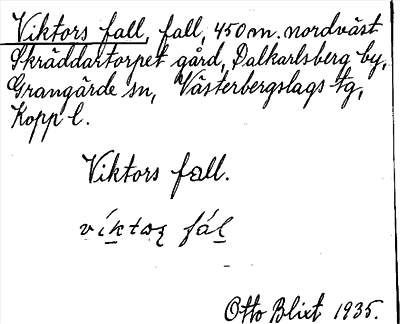 Viktors fall, fall, 450 m. nordväst
Skräddartorpet gård, Dalkarlsberg by,
Grangärde sn, Västerbergslags tg,
Kopp l.
Viktors fall.
Otto Blixt 1935.